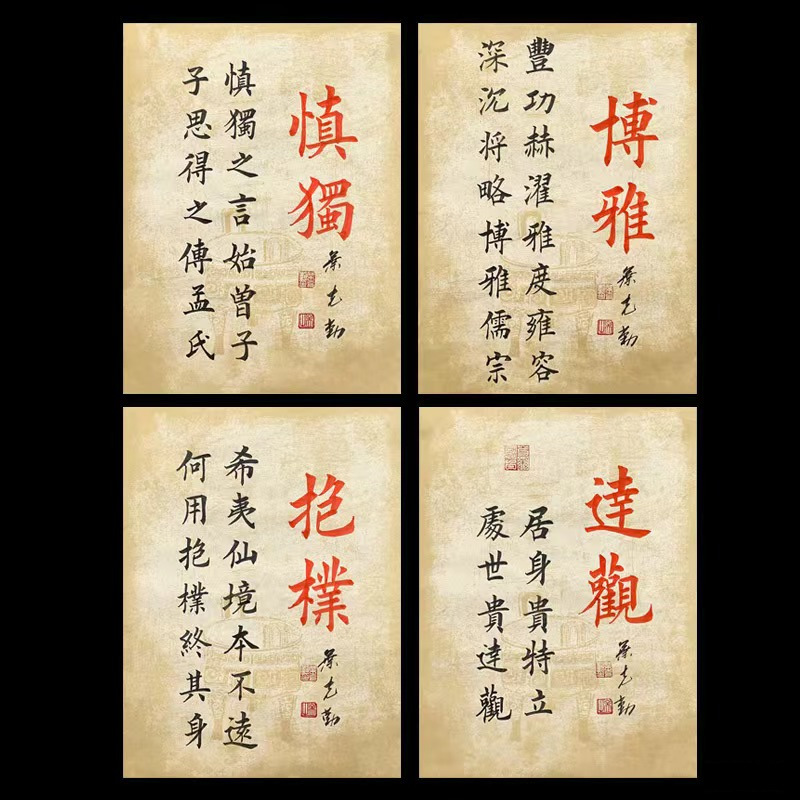 慎獨
慎獨之言始曽子
子思得之傳孟氏
博雅
豐功赫濯雅度雍容
深沉将略博雅儒宗
抱樸
希夷仙境本不遠
何用抱樸終其身
達觀
居身貴特立
處世貴達觀